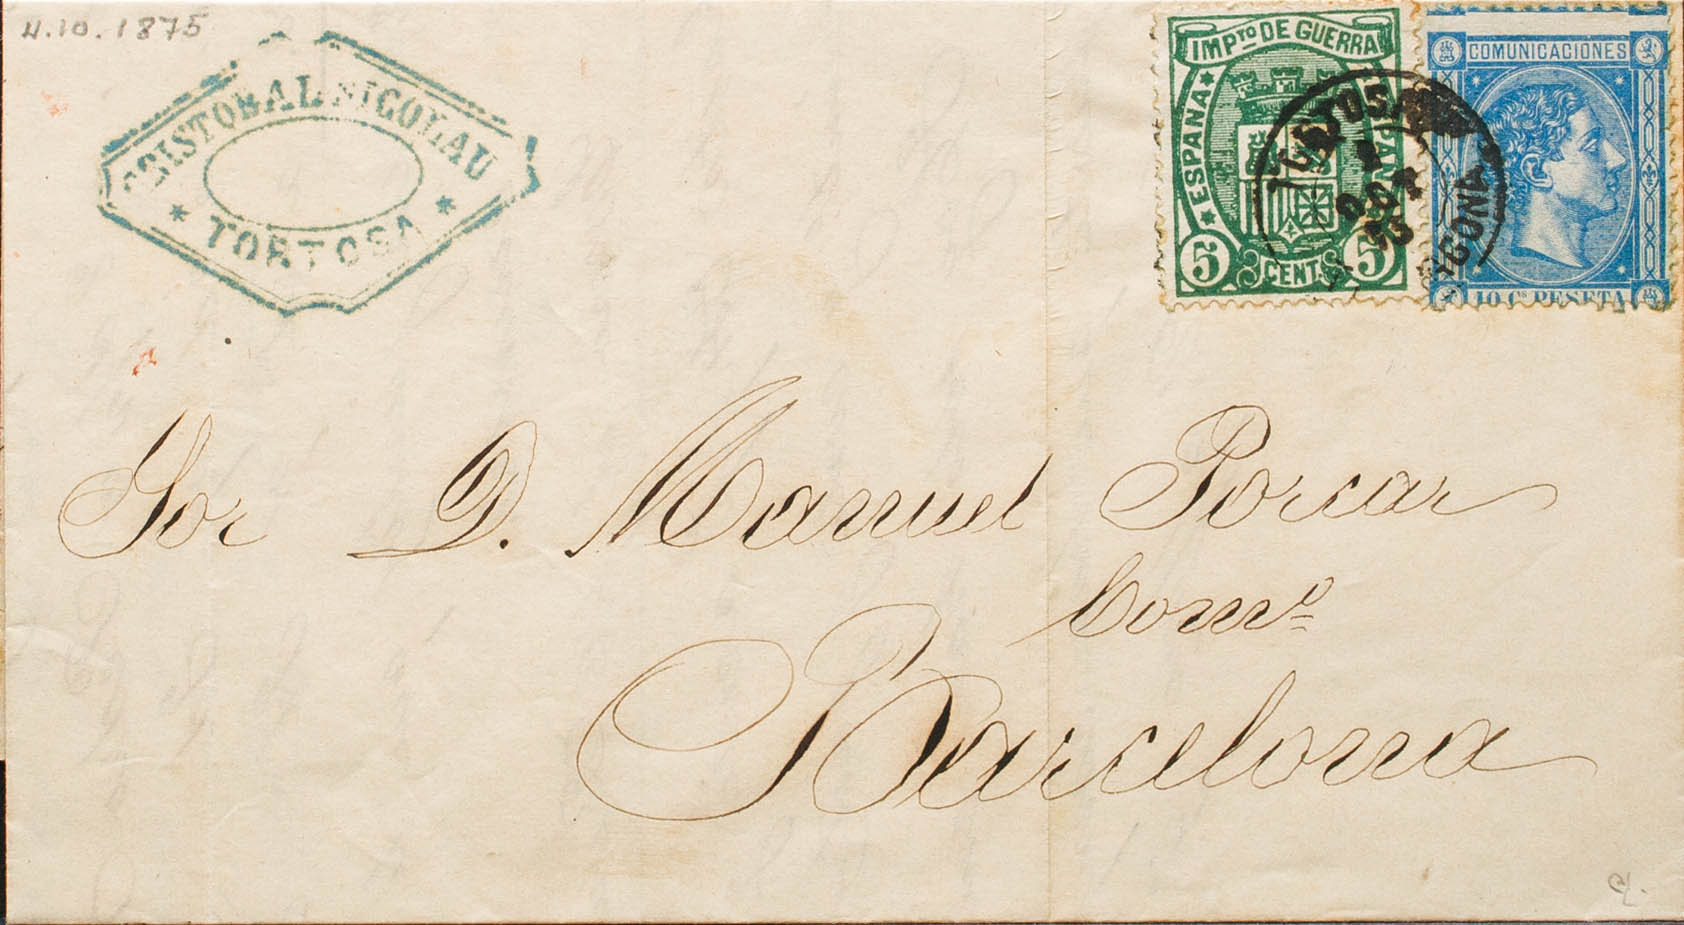 4.10.1875
CRISTOBAL NICOLAU
* TORTOSA *
IMPTO DE GUERRA
* ESPAÑA *
5 CENT. 5
COMUNICACIONES
10 Cs PESETA
TORTOSA
OCT
75
Sor D. Manuel Porcar
Como
Barcelona